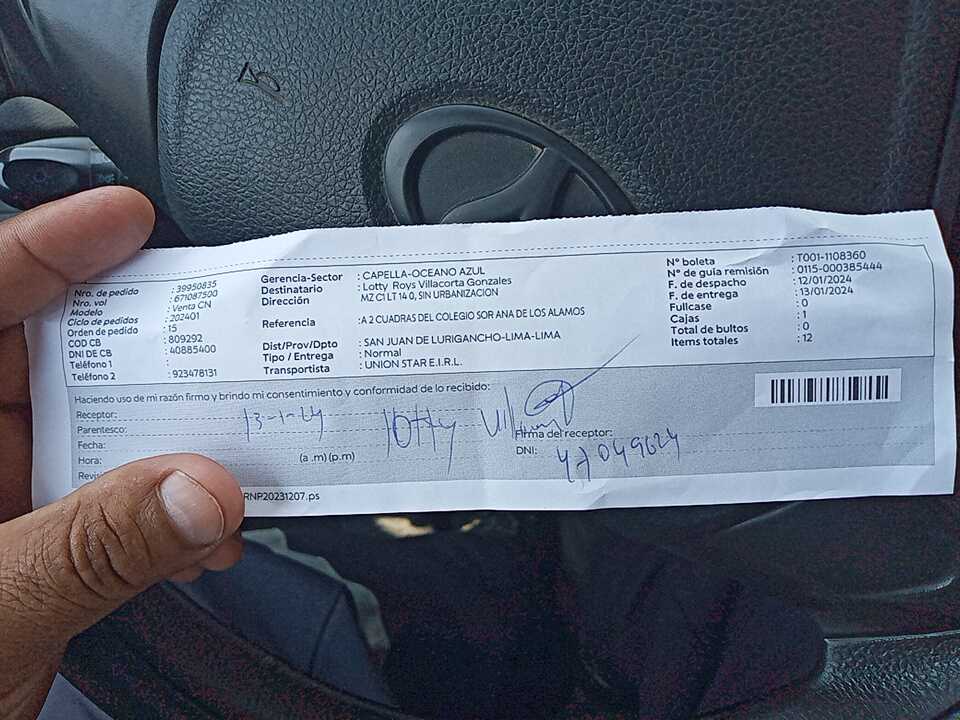 Nro. de pedido : 39950835
Nro. vol : 671087500
Modelo : Venta CN
Ciclo de pedidos : 202401
Orden de pedido : 15
COD CB : 809292
DNI DE CB : 40885400
Teléfono 1 :
Teléfono 2 : 923478131
Gerencia-Sector : CAPELLA-OCEANO AZUL
Destinatario : Lotty Roys Villacorta Gonzales
Dirección : MZ C1 LT 14 0, SIN URBANIZACION
Referencia : A 2 CUADRAS DEL COLEGIO SOR ANA DE LOS ALAMOS
Dist/Prov/Dpto : SAN JUAN DE LURIGANCHO-LIMA-LIMA
Tipo / Entrega : Normal
Transportista : UNION STAR E.I.R.L.
N° boleta : T001-1108360
N° de guía remisión : 0115-000385444
F. de despacho : 12/01/2024
F. de entrega : 13/01/2024
Fullcase : 0
Cajas : 1
Total de bultos : 0
Items totales : 12
Haciendo uso de mi razón firmo y brindo mi consentimiento y conformidad de lo recibido:
Receptor:
Parentesco:
Fecha: 13-1-24 lotty
Hora: (a .m) (p.m)
Firma del receptor:
DNI: 47049624
RNP20231207.ps